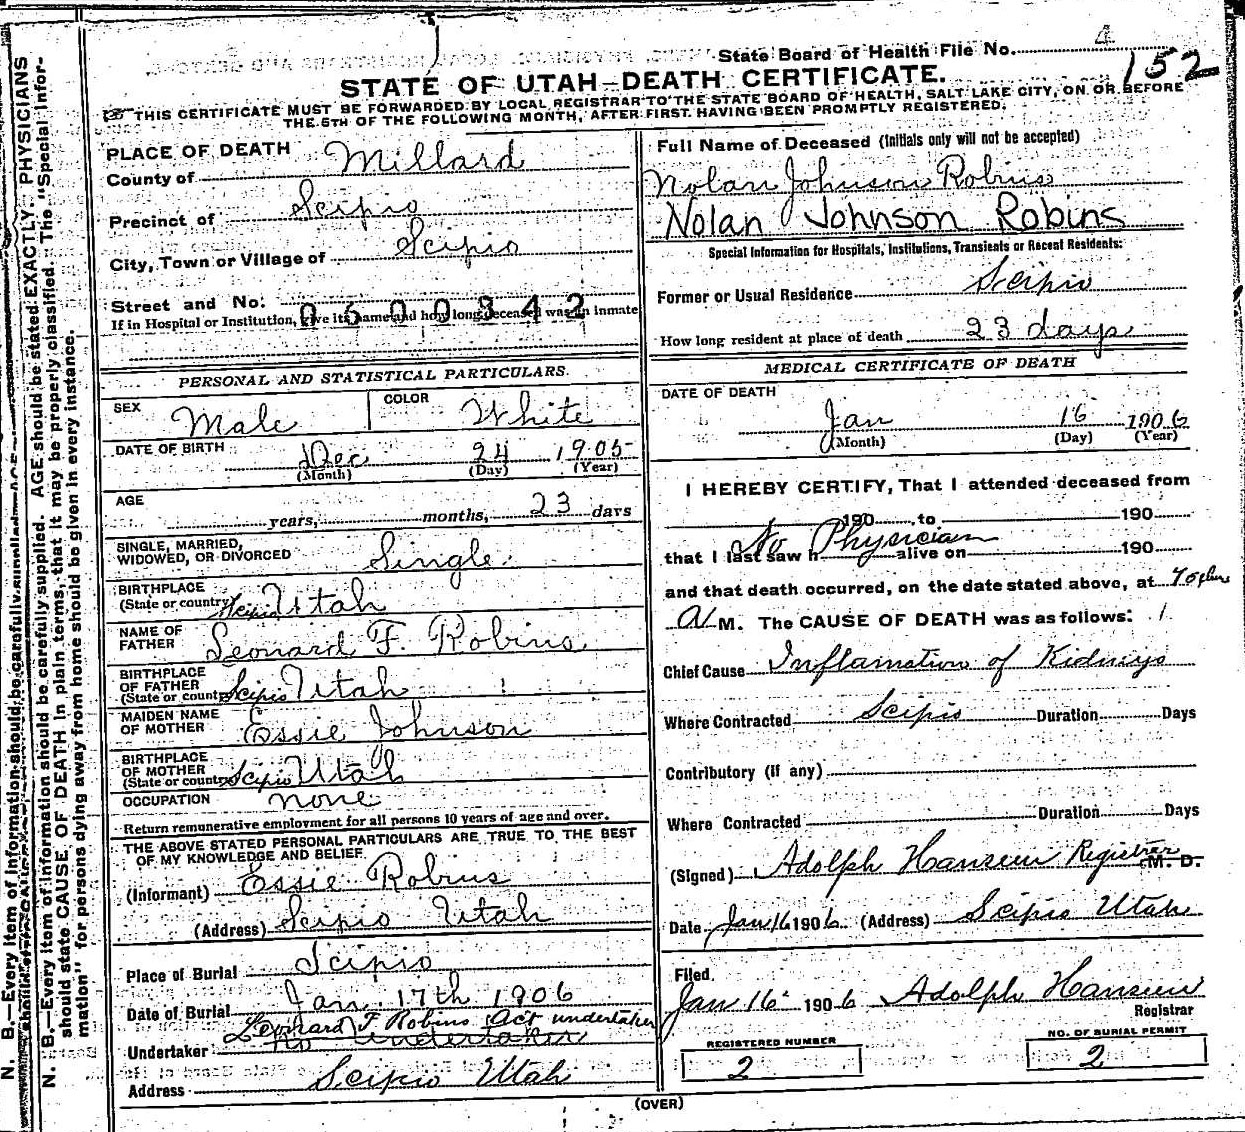 State Board of Health File No. 4
152
STATE OF UTAH—DEATH CERTIFICATE.
THIS CERTIFICATE MUST BE FORWARDED BY LOCAL REGISTRAR TO THE STATE BOARD OF HEALTH, SALT LAKE CITY, ON OR BEFORE
THE 5TH OF THE FOLLOWING MONTH, AFTER FIRST HAVING BEEN PROMPTLY REGISTERED.
N. B.—Every item of information should be carefully supplied. AGE should be stated EXACTLY. PHYSICIANS
should state CAUSE OF DEATH in plain terms, that it may be properly classified. The "Special Infor-
mation" for persons dying away from home should be given in every instance.
PLACE OF DEATH
County of Millard
Precinct of Scipio
City, Town or Village of Scipio
Street and No.
If in Hospital or Institution, give its name and how long deceased was an inmate
0600342
PERSONAL AND STATISTICAL PARTICULARS.
SEX Male COLOR White
DATE OF BIRTH Dec 24 1905
(Month) (Day) (Year)
AGE years, months, 23 days
SINGLE, MARRIED,
WIDOWED, OR DIVORCED Single
BIRTHPLACE
(State or country) Scipio Utah
NAME OF
FATHER Leonard F. Robins
BIRTHPLACE
OF FATHER
(State or country) Scipio Utah
MAIDEN NAME
OF MOTHER Essie Johnson
BIRTHPLACE
OF MOTHER
(State or country) Scipio Utah
OCCUPATION none
Return remunerative employment for all persons 10 years of age and over.
THE ABOVE STATED PERSONAL PARTICULARS ARE TRUE TO THE BEST
OF MY KNOWLEDGE AND BELIEF
(Informant) Essie Robins
(Address) Scipio Utah
Place of Burial Scipio
Date of Burial Jan. 17th 1906
Leonard F Robins Act undertaker
Undertaker no undertaker
Address Scipio Utah
Full Name of Deceased (Initials only will not be accepted)
Nolan Johnson Robins
Nolan Johnson Robins
Special Information for Hospitals, Institutions, Transients or Recent Residents:
Former or Usual Residence Scipio
How long resident at place of death 23 days
MEDICAL CERTIFICATE OF DEATH
DATE OF DEATH
Jan 16 1906
(Month) (Day) (Year)
I HEREBY CERTIFY, That I attended deceased from
190 , to 190
No Physician
that I last saw h alive on 190
and that death occurred, on the date stated above, at
A M. The CAUSE OF DEATH was as follows:
Chief Cause Inflamation of Kidneys
Where Contracted Scipio Duration Days
Contributory (if any)
Where Contracted Duration Days
(Signed) Adolph Hansen Registrar M. D.
Date Jan 16 1906 (Address) Scipio Utah
Filed
Jan 16 1906 Adolph Hansen
Registrar
REGISTERED NUMBER NO. OF BURIAL PERMIT
2 2
(OVER)